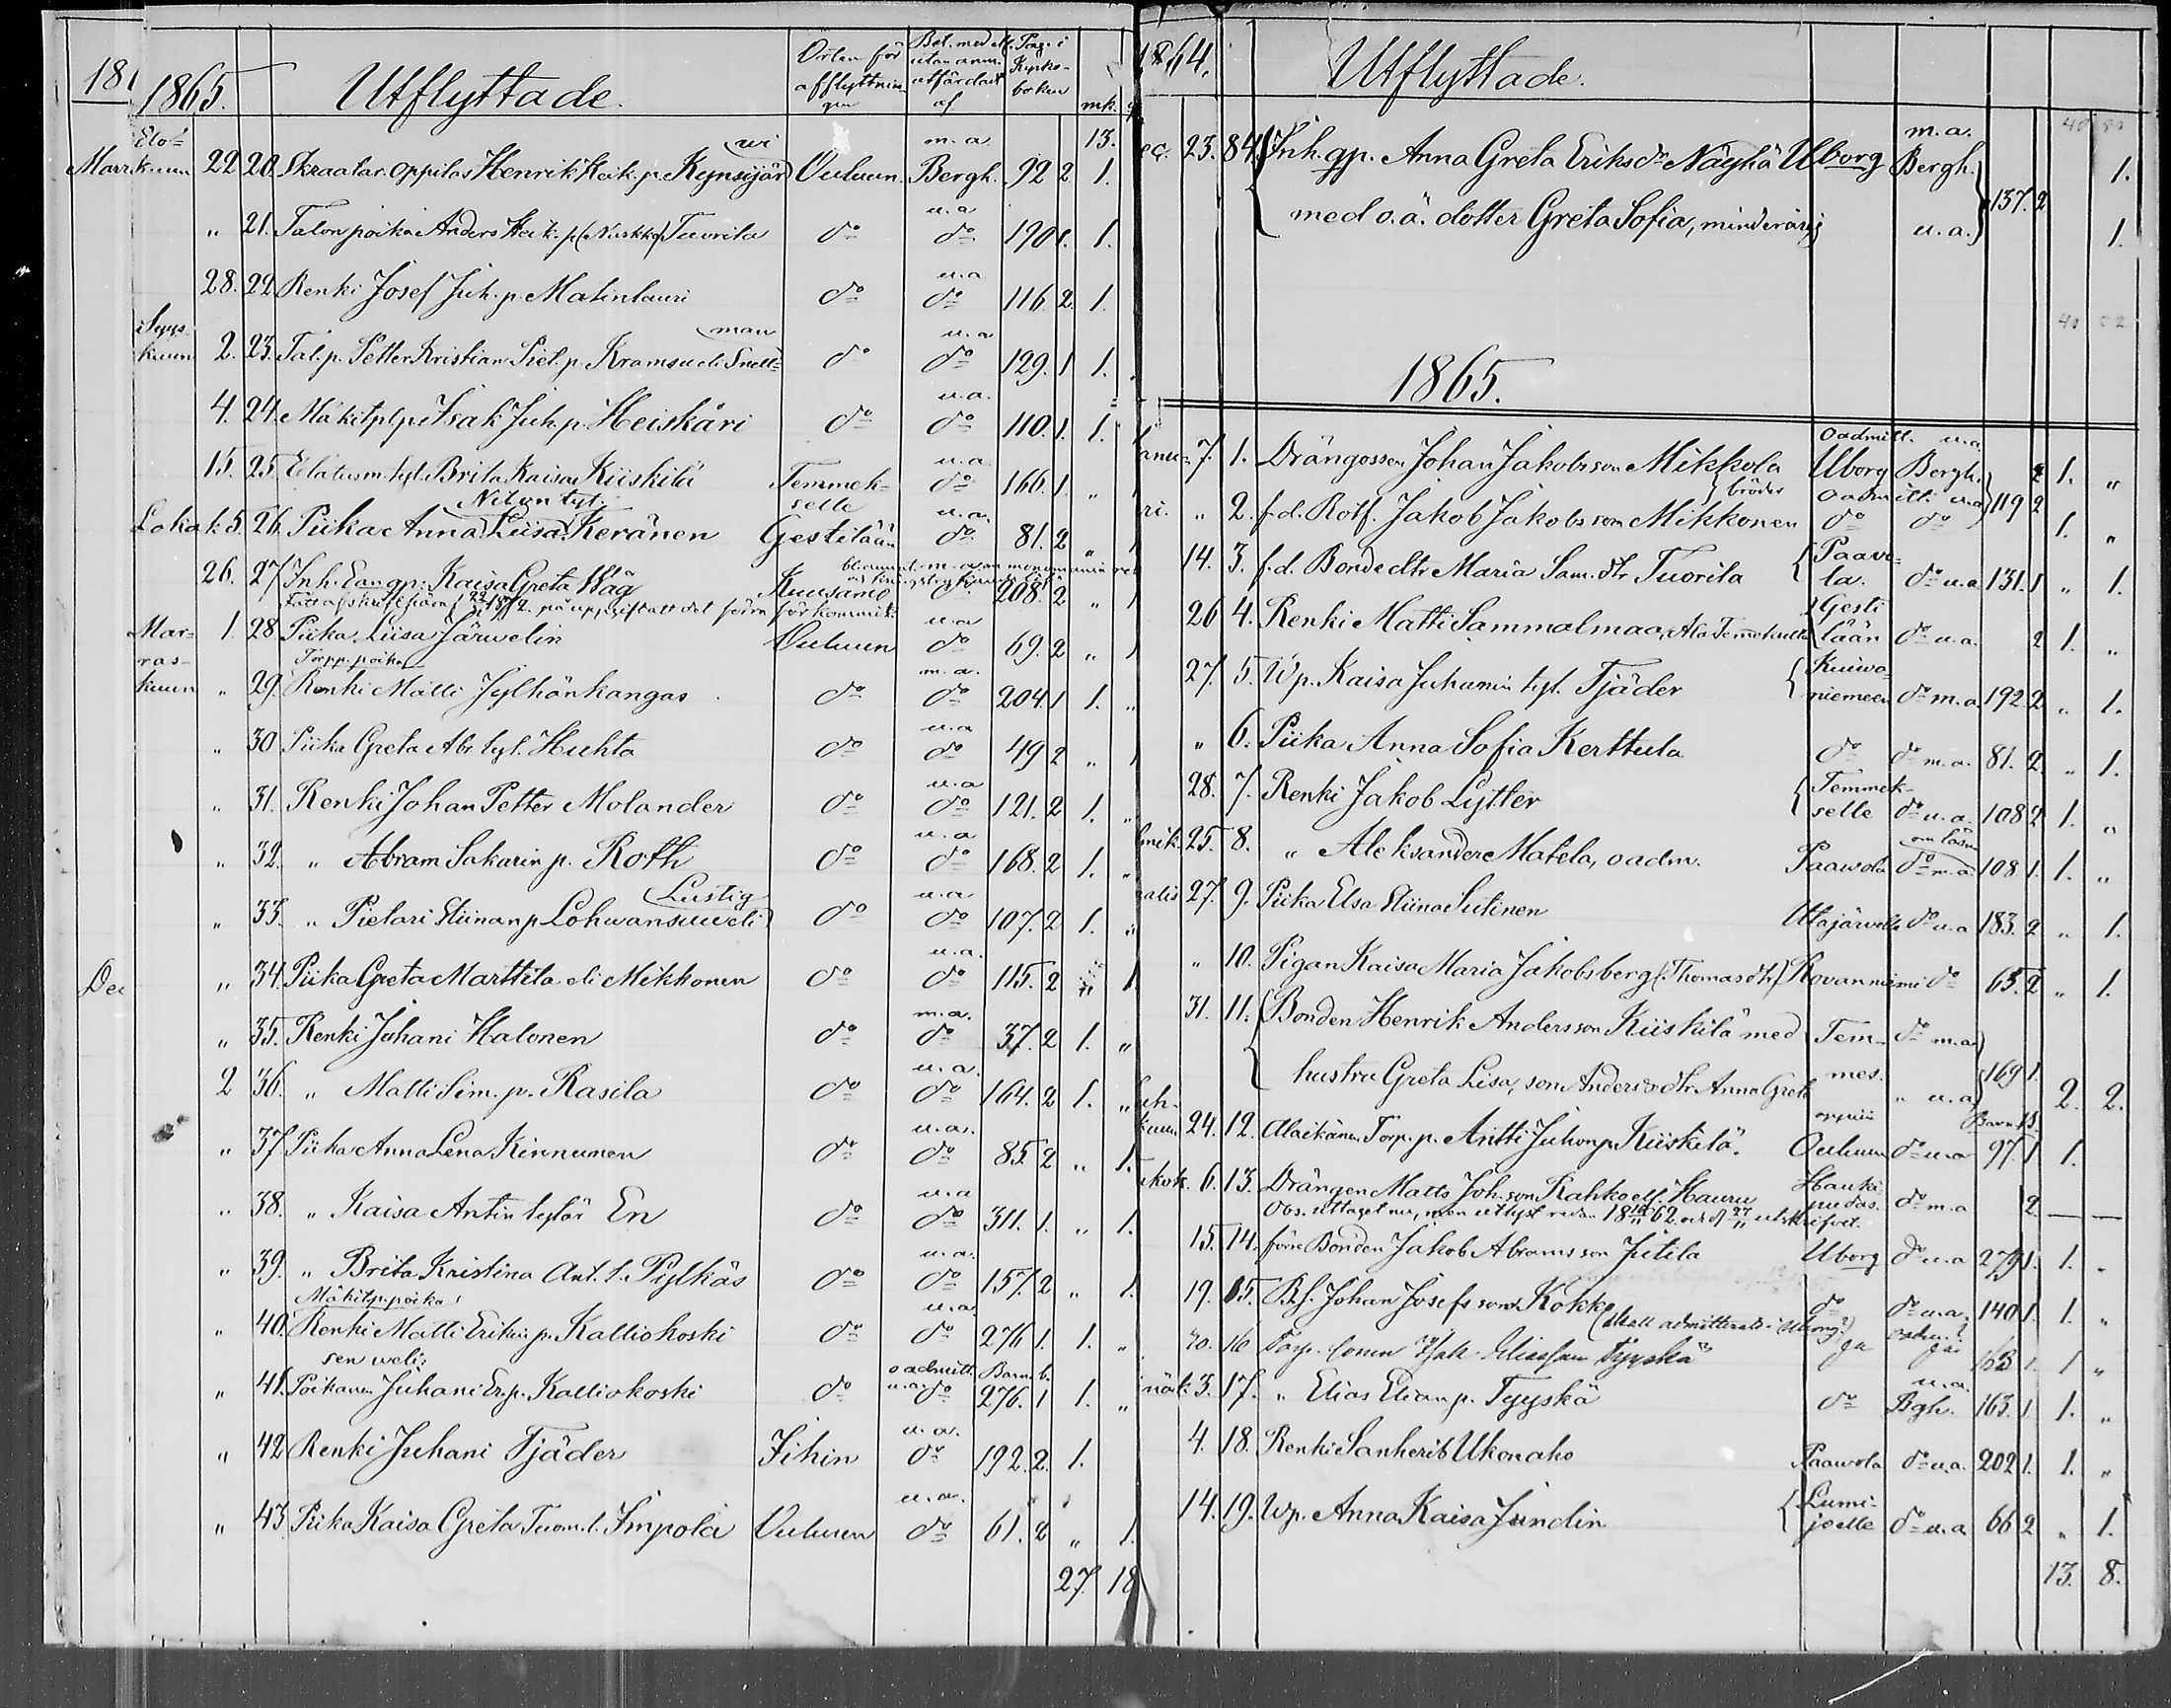 1865. Utflyttade. Orten för afflyttningen Bet. med el. utan anm. utfärdadt af Pag. i Kyrkoboken mk. q
13.
Elokuun 22 20. Skraatar. oppilas Henrik Heik. p. Kynsijärwi Ouluun. m. a. Bergh. 92 2 1.
„ 21. Talon poika Anders Heik. p. (Narkko) Tuorila do u. a do 190 1. 1.
28. 22. Renki Josef Juh. p. Matinlauri do u. a do 116. 2. 1.
Syyskuun 2. 23. Tal. p. Petter Kristian Piet. p. Kramsu eli Snellman do u. a do 129. 1 1.
4. 24. Mäkitp. p. Isak Juh. p. Heiskari do u. a. do 110. 1. 1.
15. 25. Brita Kaisa Kiiskilä Temmekselle u. a do 166. 1. „ 1
Nilun tyt.
Lokak. 5. 26. Piika Anna Liisa Keränen Gestilään u. a. do 81. 2 „ 1
26. 27 Inh. Kaisa Greta Wäg Kuusamo do 208. 2 „ 1
Marraskuun 1. 28 Piika Liisa Järwelin Ouluun u. a do 69. 2 „ 1
Torpp. poika
„ 29. Renki Matti Jylhänkangas do m. a. do 204. 1 1. „
„ 30 Piika Greta Abr. tyt. Huhta do u. a do 49 2 „ 1
„ 31. Renki Johan Petter Molander do u. a do 121. 2 1. „
„ 32. „ Abram Sakarin p. Roth do u. a do 168. 2 1. „
„ 33. „ Pietari Stiinan p. Lohwansuu eli Lustig do u. a do 107. 2 1. „
„ 34. Piika Greta Marttila eli Mikkonen do u. a. do 115. 2 „ 1.
„ 35. Renki Juhani Halonen do m. a. do 37. 2 1. „
2 36. „ Matti Sim. p. Rasila do u. a. do 164. 2 1. „
„ 37 Piika Anna Lena Kinnunen do u. a. do 85. 2 „ 1.
„ 38. „ Kaisa Antin tytär En do u. a do 311. 1. „ 1.
„ 39. „ Brita Kristina Ant. t. Pylkäs do u. a. do 157. 2 „ 1.
Mäkitp. poika
„ 40. Renki Matti Erikin p. Kalliokoski do u. a do 276 1. 1. „
sen weli:
„ 41. Poikanen Juhani Er. p. Kalliokoski do oadmitt. u. a. do Barn. b. 276. 1 1. „
„ 42 Renki Juhani Tjäder Jihin u. a. do 192. 2. 1.
„ 43 Piika Kaisa Greta Tuom. t. Impola Ouluun u. a. do 61. 2 „ 1.
27 18
1864. Utflyttade.
ec. 23. 84. Inh. qp. Anna Greta Eriksdr Näykä Uborg m. a. Bergh. 137. 2 1.
med o. ä. dotter Greta Sofia, minderårig u. a. 1.
1865.
Janu- 7. 1. Drängossen Johan Jakobsson Mikkola Uborg oadmitt. u. a. Bergh. 2 1. „
bröder
ri. „ 2. f. d. Rotf. Jakob Jakobsson Mikkonen oadmitt. u. a do do 119 2 1. „
14. 3. f. d. Bondedtr Maria Sam. dtr Tuorila Paavola. do u. a 131. 1 „ 1.
26 4. Renki Matti Sammalmaa, Ala Temmekseltä Gestilään do u. a. 2 1. „
27. 5. Wp. Kaisa Juhanin tyt. Tjäder Kuiwaniemeen do m. a. 192. 2 „ 1.
„ 6. Piika Anna Sofia Kerttula do do m. a. 81. 2. „ 1.
28. 7. Renki Jakob Lytter Temmekselle do u. a. 108 2 1. „
25. 8. „ Aleksander Matela, oadm. Paawola do m. a. 108. 1. 1. „
27. 9. Piika Elsa Stiina Sutinen Utajärwelle do u. a 183. 2 „ 1.
„ 10. Pigan Kaisa Maria Jakobsberg (Thomasdtr) Rovaniemi do 65. 2 „ 1.
31. 11. Bonden Henrik Andersson Kiiskilä med Temmes. do m. a
hustru Greta Lisa, son Anders o. dtr. Anna Greta „ u. a 169 1. 2. 2.
24. 12. Alaikänen Torp. p. Antti Juhon p. Kiiskilä. Ouluun do u. a 97. 1 1.
6. 13. Drängen Matts Joh. son Rahko ell. Hauru Haukipudas. do m. a 2. — —
15. 14. förre Bonden Jakob Abramsson Jutila Uborg do u. a 279 1. 1. „
19. 15. Bf. Johan Josefsson Kokko do do u. a. 140 1. 1. „
(skall admitteras i Uborg?)
20. 16 Torp. sonen Isak Eliasson Tyyskä 163 1. 1 „
3. 17. „ Elias Elian p. Tyyskä do u. a. Bgh. 163. 1. 1. „
4. 18. Renki Sanherib Ukonaho Paawola do u. a. 202 1. 1. „
14. 19. Wp. Anna Kaisa Jundin Lumijoelle do u. a 66 2 „ 1.
13. 8.